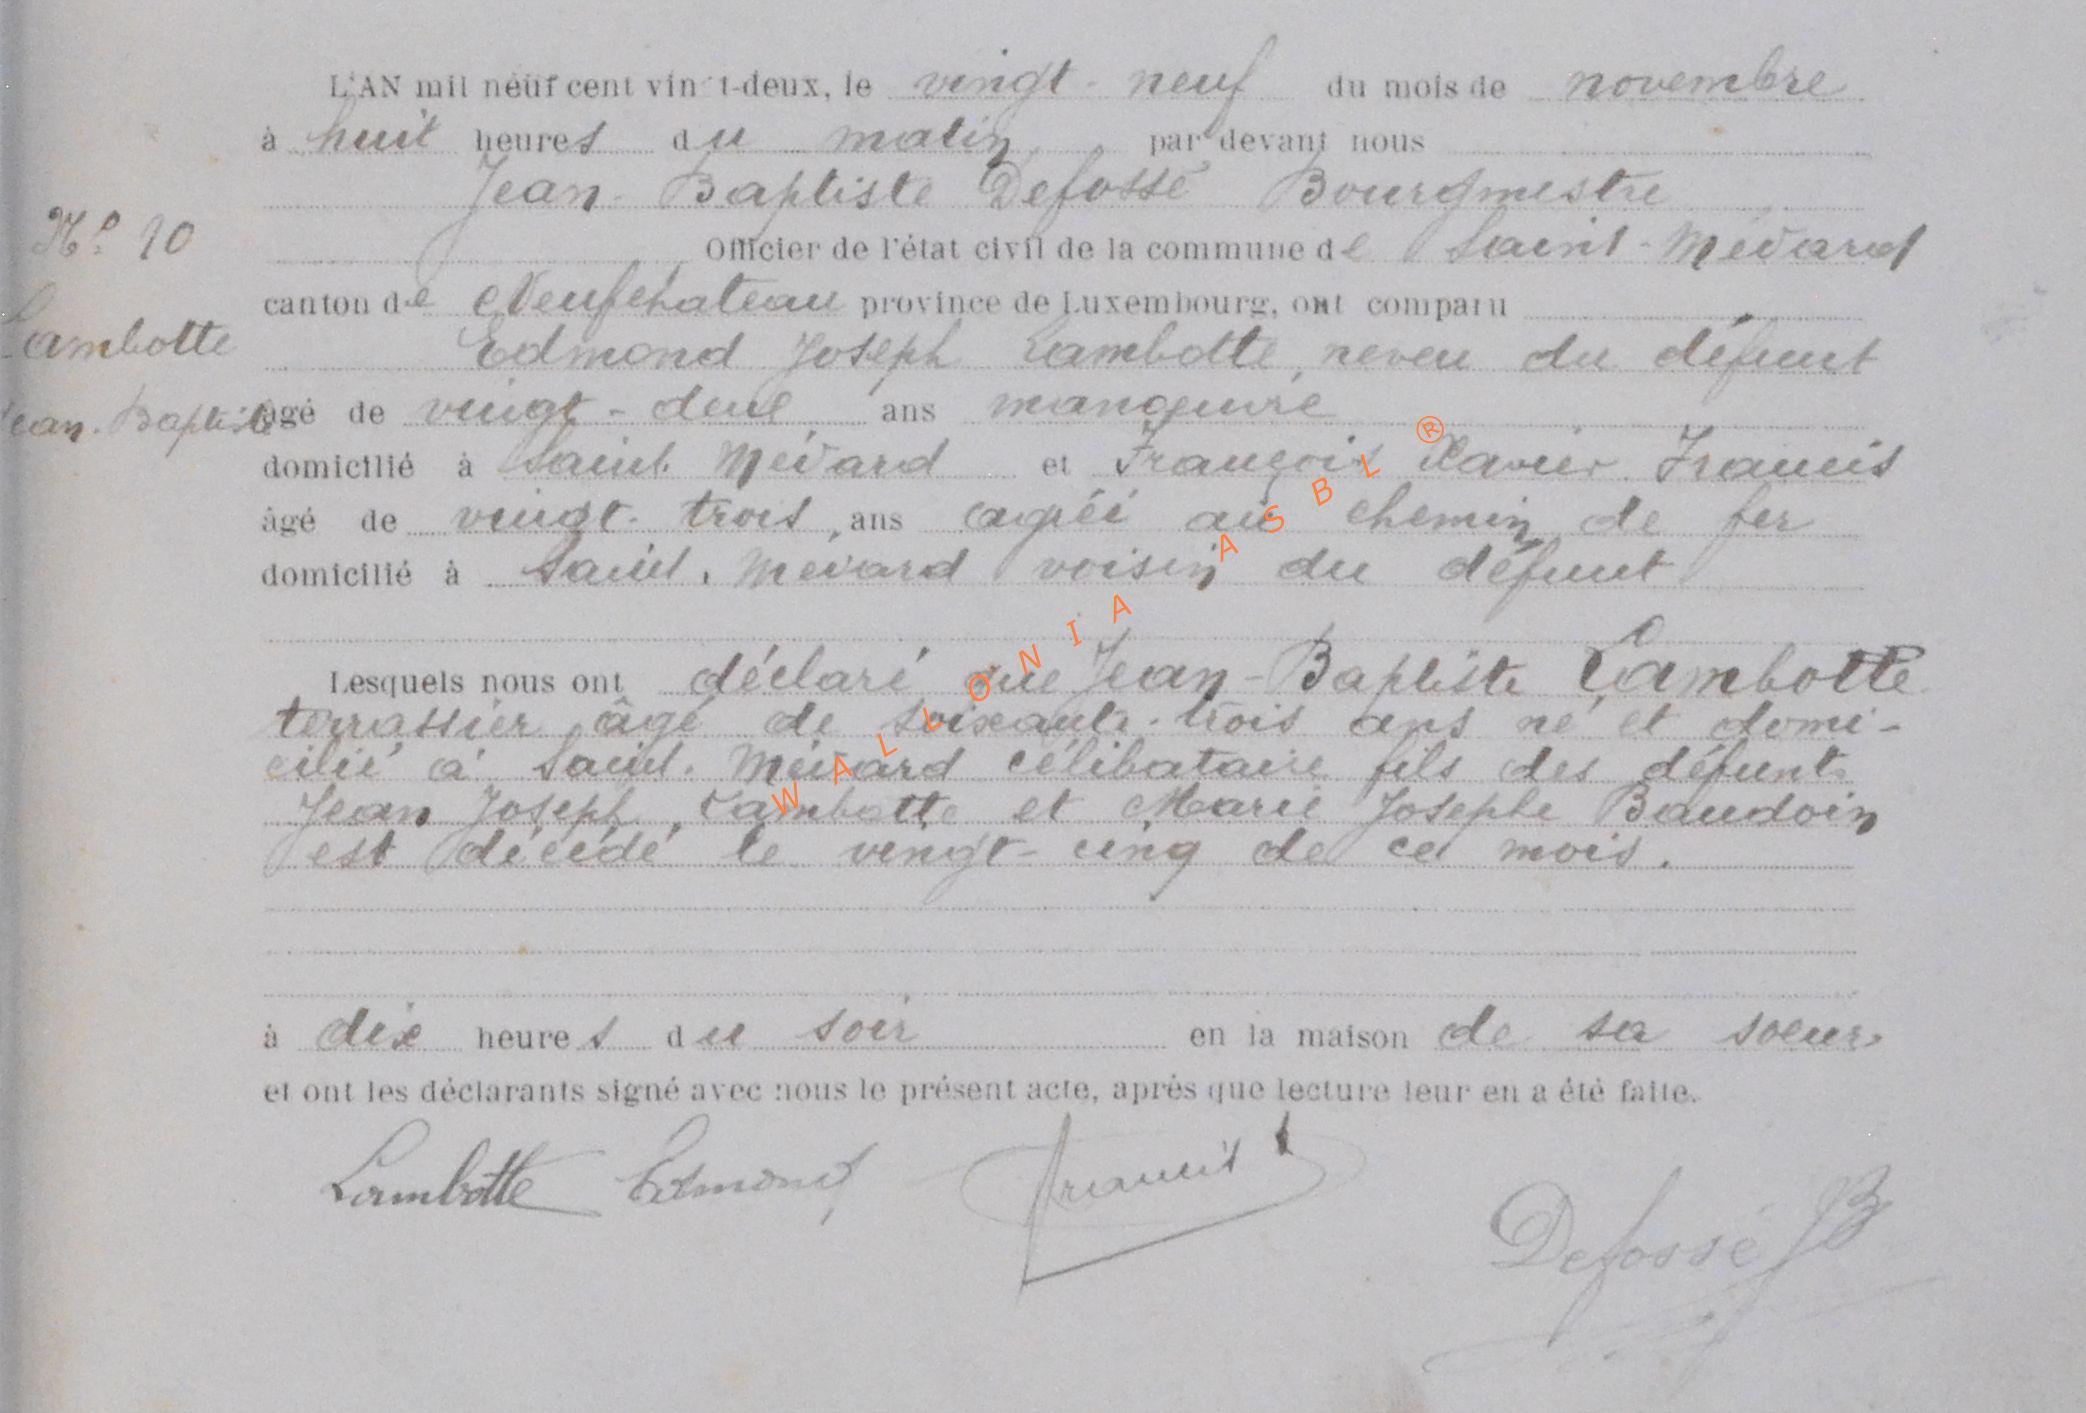 L'AN mil neuf cent vingt-deux, le vingt-neuf du mois de novembre
à huit heures du matin par devant nous
Jean-Baptiste Defossé Bourgmestre
N° 10
Officier de l'état civil de la commune de Saint-Médard
canton de Neufchateau province de Luxembourg, ont comparu
Lambotte
Edmond Joseph Lambotte, neveu du défunt
Jean-Baptiste
âgé de vingt-deux ans manœuvre
domicilié à Saint-Médard et François Xavier Francis
âgé de vingt-trois ans agréé au chemin de fer
domicilié à Saint-Médard voisin du défunt
Lesquels nous ont déclaré que Jean-Baptiste Lambotte
terrassier âgé de soixante-trois ans né et domi-
cilié à Saint-Médard célibataire fils des défunts
Jean Joseph Lambotte et Marie Josephe Baudoin
est décédé le vingt-cinq de ce mois.
à dix heures du soir en la maison de sa soeur
et ont les déclarants signé avec nous le présent acte, après que lecture leur en a été faite.
Lambotte Edmond Francis
Defossé JB
WALLONIA ASBL ®